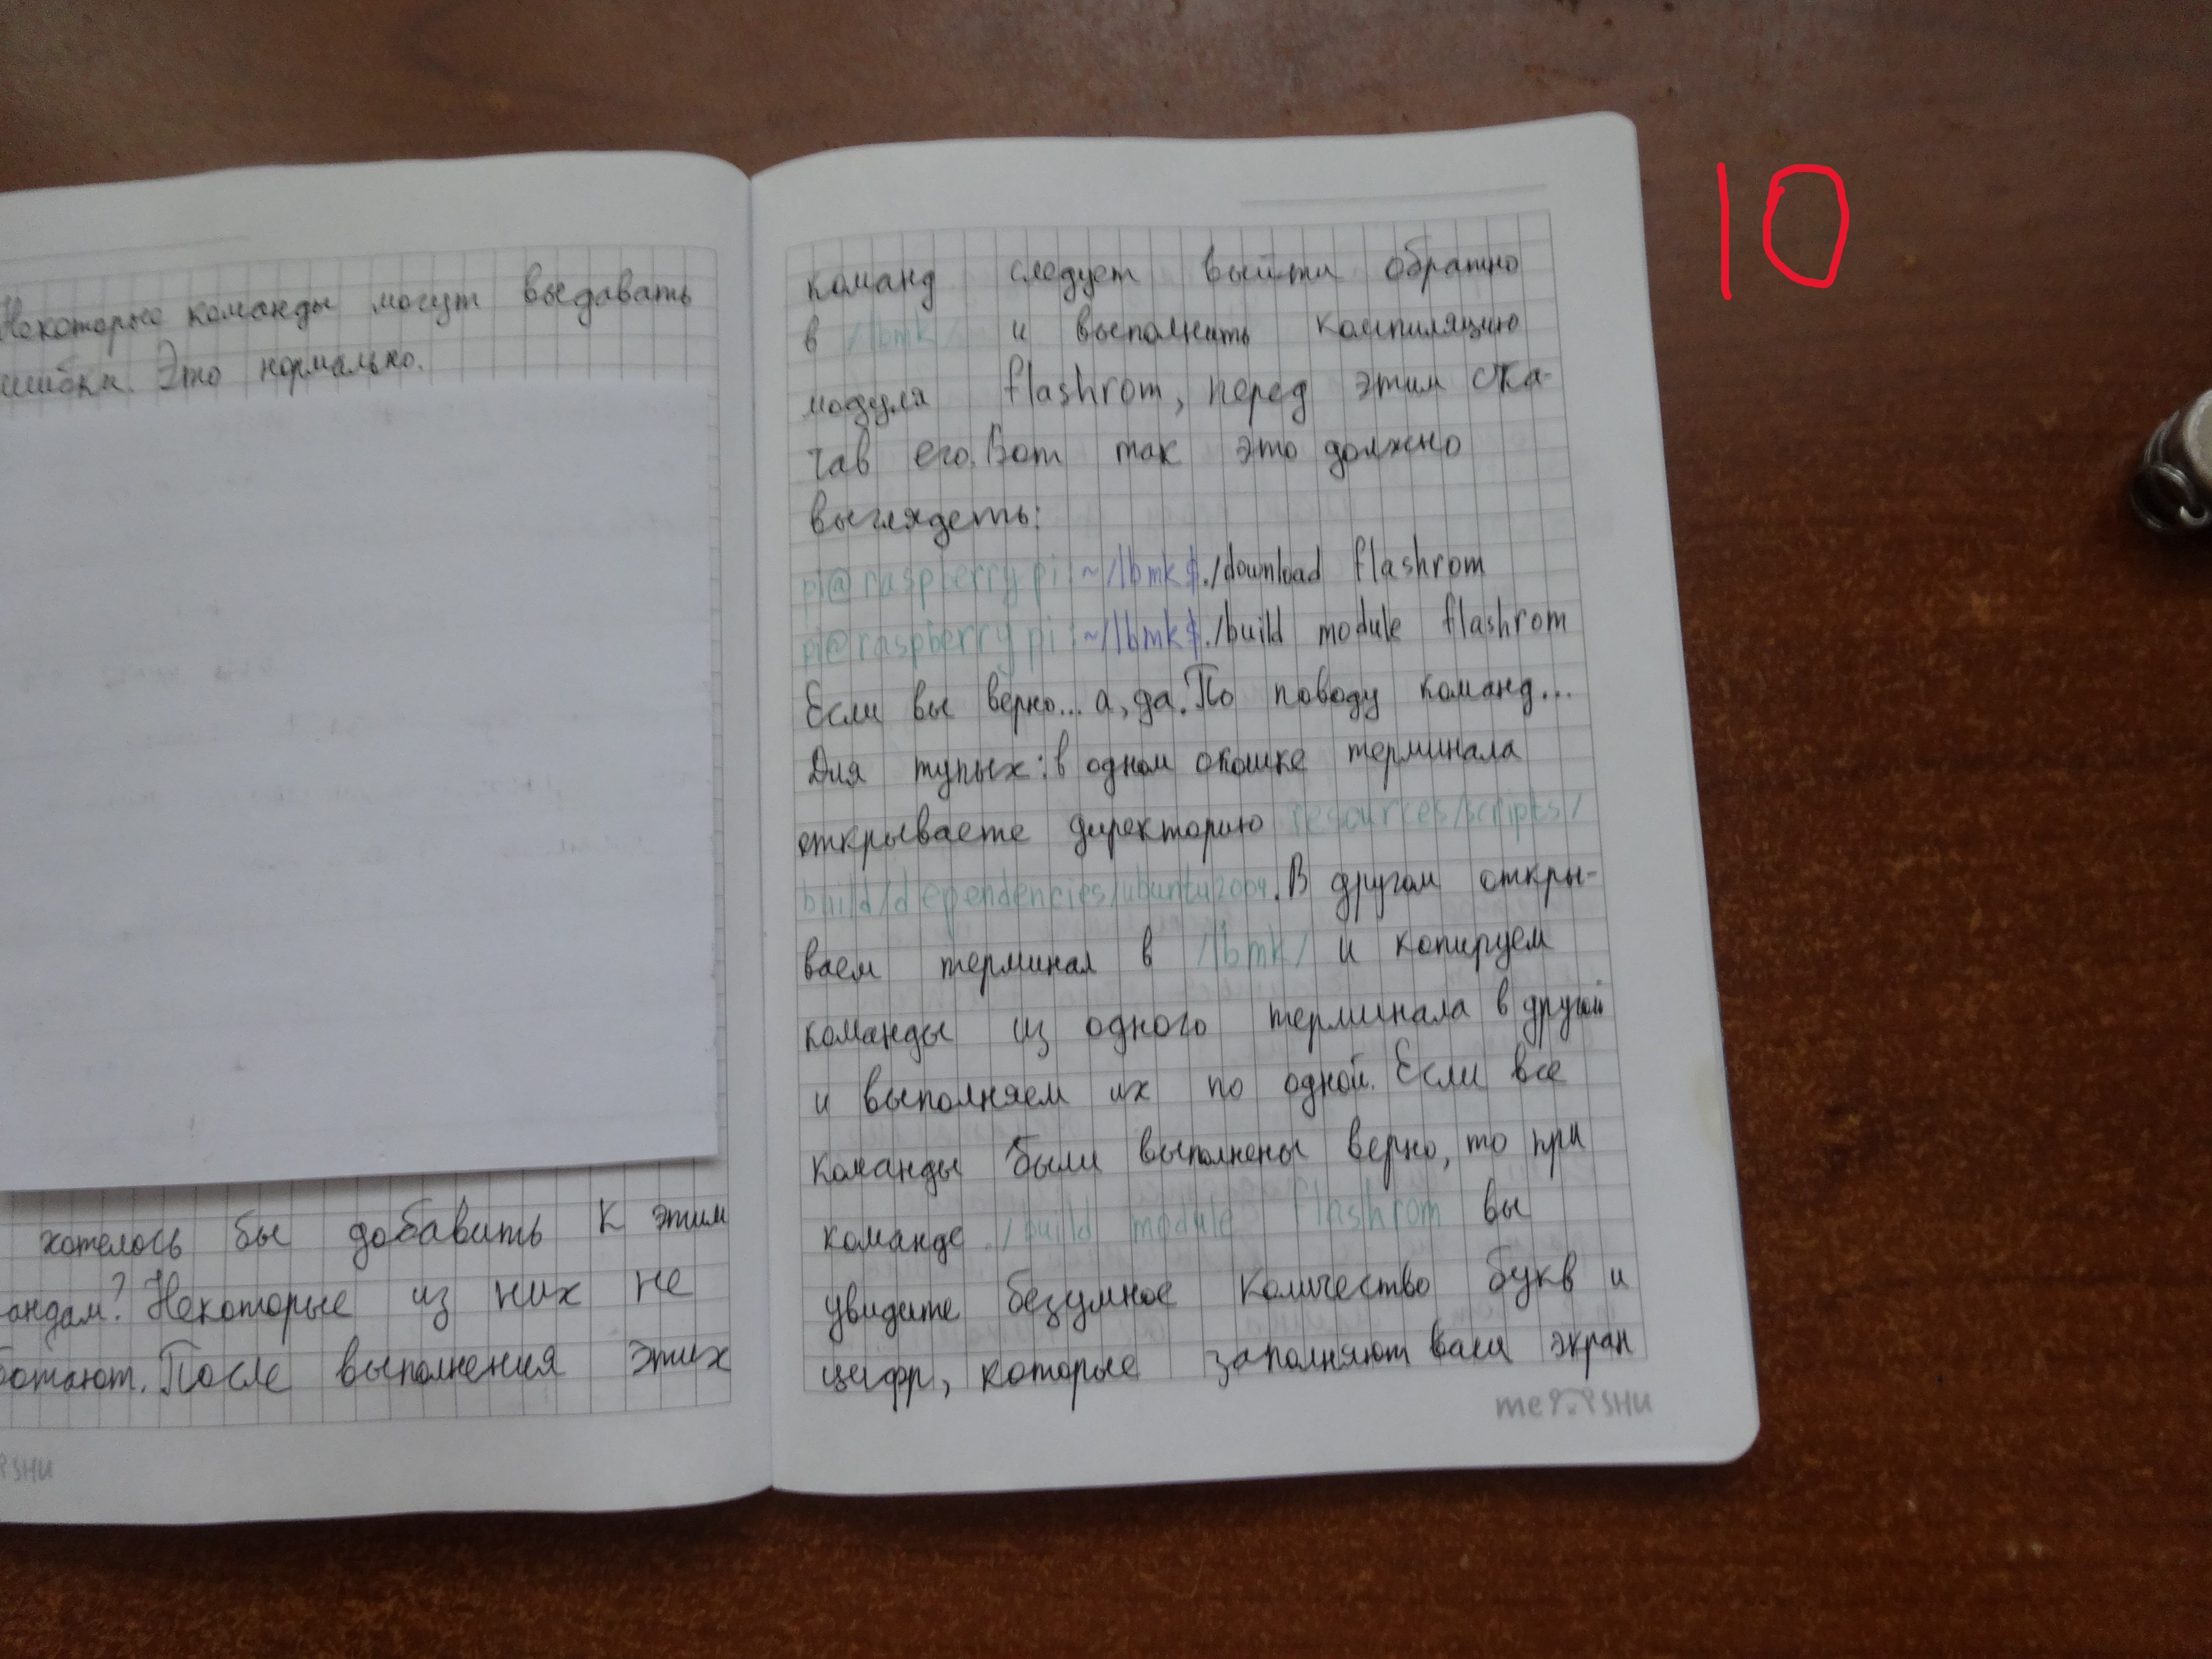 Некоторые команды могут выдавать
ошибки. Это нормально.
хотелось бы добавить к этим
андам? Некоторые из них не
ботают. После выполнения этих
команд следует выйти обратно
в /lbmk/ и выполнить компиляцию
модуля flashrom, перед этим ска-
чав его. Вот так это должно
выглядеть:
pi@raspberrypi:~/lbmk$./download flashrom
pi@raspberrypi:~/lbmk$./build module flashrom
Если вы верно... а, да. По поводу команд...
Для тупых: в одном окошке терминала
открываете директорию resources/scripts/
build/dependencies/ubuntu2004. В другом откры-
ваем терминал в /lbmk/ и копируем
команды из одного терминала в другой
и выполняем их по одной. Если все
команды были выполнены верно, то при
команде ./build module flashrom вы
увидите безумное количество букв и
цифр, которые заполняют ваш экран
me SHU
SHU
10